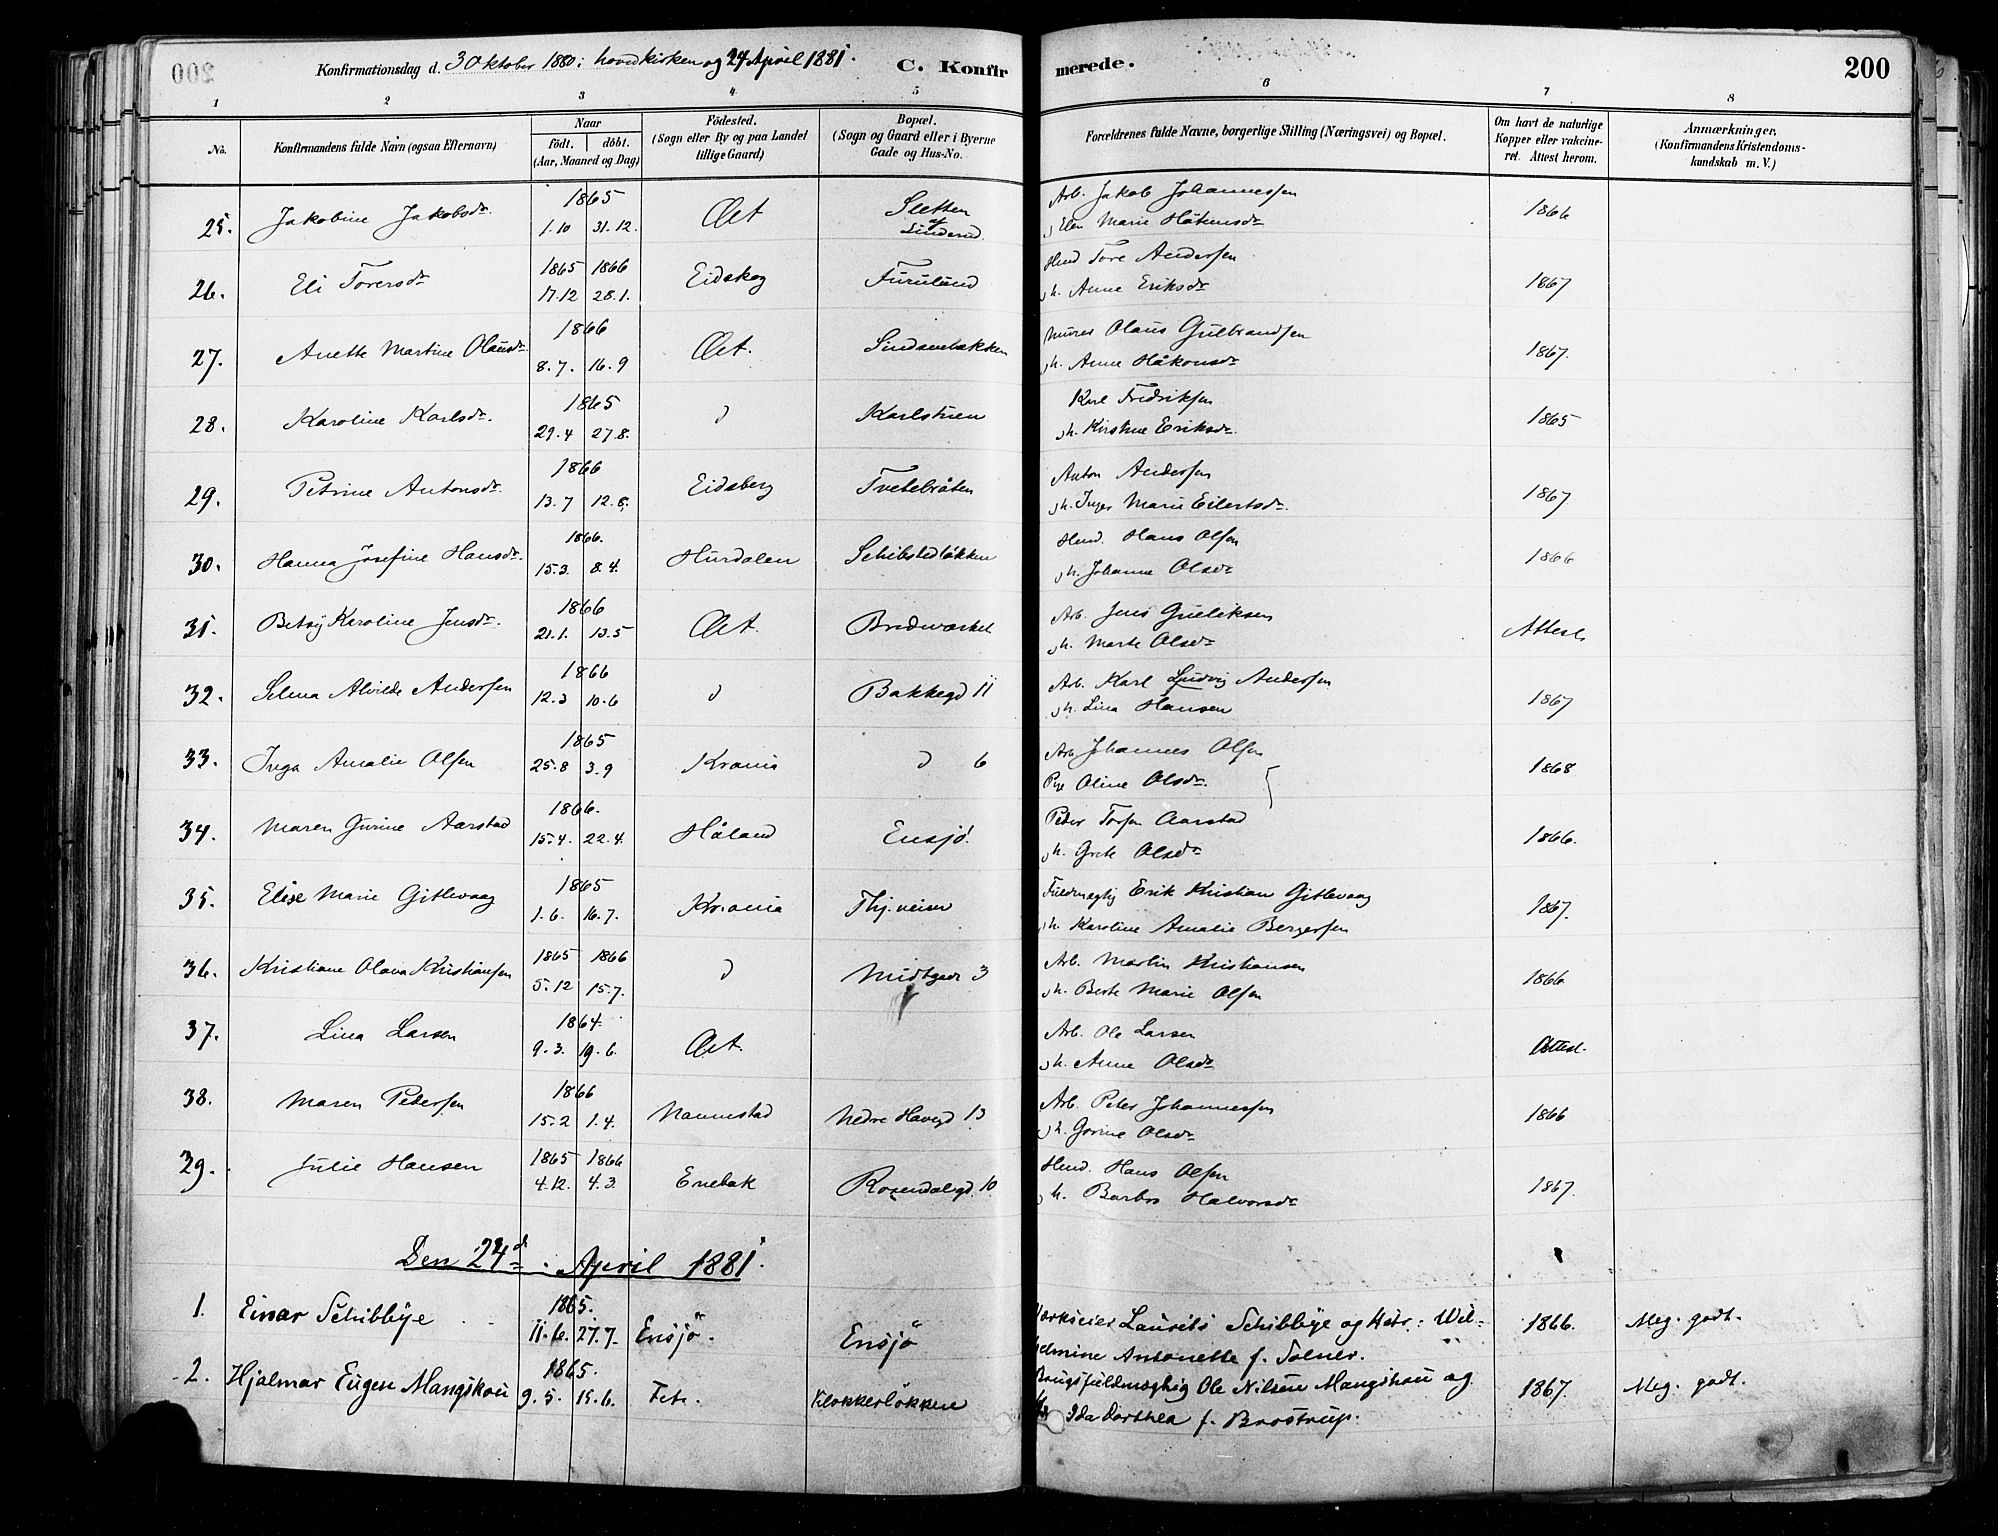 Konfirmationsdag d. 3 Oktober 1880 i hovedkirken og 24 April 1881. C. Konfirmerede. 200
1 2 3 4 5 6 7 8
No. Konfirmandens fulde Navn (ogsaa Efternavn) Naar födt. döbt. (Aar, Maaned og Dag) Födested. (Sogn eller By og paa Landet tillige Gaard) Bopæl. (Sogn og Gaard eller i Byerne Gade og Hus-No. Forældrenes fulde Navne, borgerlige Stilling (Næringsvei) og Bopæl. Om havt de naturlige Kopper eller vakcineret. Attest herom. Anmærkninger, (Konfirmandens Kristendomskundskab m. V.)
25. Jakobine Jakobsdr. 1865 1.10 31.12. Øst Sletten af Linderud Arb. Jakob Johannessen 1866
Elen Marie Håkensdr
26. Eli Toresdr 1865 1866 17.12 28.1. Eidskog Furulund Hmd Tore Andersen 1867
h. Anne Eriksdr
27. Anette Martine Olausdr 1866 8.7. 16.9 Øst. Murer Olaus Gulbrandsen 1867.
h. Anne Håkonsdr
28. Karoline Karlsdr. 1865 29.4 27.8. d Karlstuen Karl Fredriksen 1865
h. Kirstine Eriksdr.
29. Petrine Antonsdr. 1866 13.7 12.8. Eidsberg Tvetebråten Anton Andersen 1867
h. Inger Marie Eilertsdr.
30. Hanna Josefine Hansdr. 1866. 15.3. 8.4. Hurdalen Schibstedløkken Hmd. Hans Olsen 1866
h. Johanne Olsdr
31. Betsy Karoline Jensdr. 1866 21.1. 13.5 Øst. Bredværket Arb. Jens Guliksen Attest
h. Marte Olsdr
32. Selma Alvilde Andersen 1866 12.3 10.6 d Bakkegd 11 Arb. Karl Ludvig Andersen 1867
h. Lina Hansen
33. Inga Amalie Olsen 1865 25.8 3.9 Krania d 6 Arb Johannes Olsen 1868
Pge Oline Olsdr.
34. Maren Gurine Aarstad 1866. 15.4. 22.4. Håland Ensjø. Peder Torsen Aarstad 1866.
h. Grete Olsdr
35. Elise Marie Gitlevaag 1865 1.6. 16.7. Kr.ania Thj.veien Fuldmægtig Erik Kristian Gitlevaag 1867.
h. Karoline Amalie Bergersen
36. Kristiane Olava Kristiansen 1865 1866 5.12 15.7. d Midtgadr 3 Arb. Martin Kristiansen 1866
h. Berte Marie Olsen
37. Lina Larsen 1864. 9.3. 19.6. Øst. Arb. Ole Larsen Attest.
h. Anne Olsdr
38. Maren Pedersen 1866 15.2 1.4. Nannestad Nedre Havegd 13 Arb. Peter Johannessen 1866
h. Gorine Olsdr
39. Julie Hansen 1865 1866 4.12. 4.3. Enebak Rosendalsgd. 10 Hmd. Hans Olsen 1867.
h. Barbro Halvorsdr
Den 24d. April 1881.
1. Einar Schibbye 1865. 11.6. 27.7. Ensjö. Ensjö Laurits Schibbye og Hstr.: Wil- 1866. Meg. godt.
helmine Antonette f. Solner.
2. Hjalmar Eugen Mangskou 1865. 9.5. 15.6. Fet. Klokkerløkken Brugsfuldmægtig Ole Nilsen Mangskou og 1867. Meg. godt.
Ida Dorthea f. Brostrup.